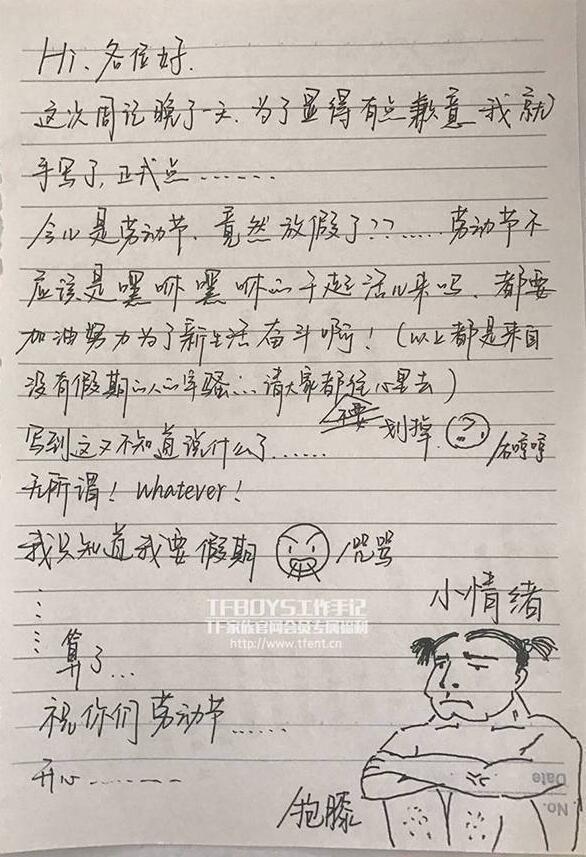 Hi、各位好.
这次周记晚了一天.为了显得有点歉意我就
手写了,正式点……
今儿是劳动节、竟然放假了??……劳动节不
应该是嘿咻嘿咻的干起活儿来吗、都要
加油努力为了新生活奋斗啊!(以上都是来自
没有假期的人的牢骚…请大家都往心里去)
不要 划掉
写到这又不知道说什么了……
/右哼哼
无所谓! Whatever!
我只知道我要假期 /咒骂
TFBOYS工作手记
TF家族官网会员专属福利
http://www.tfent.cn
小情绪
……
算了…
祝你们劳动节……
开心………
/抱膝
Date
No.